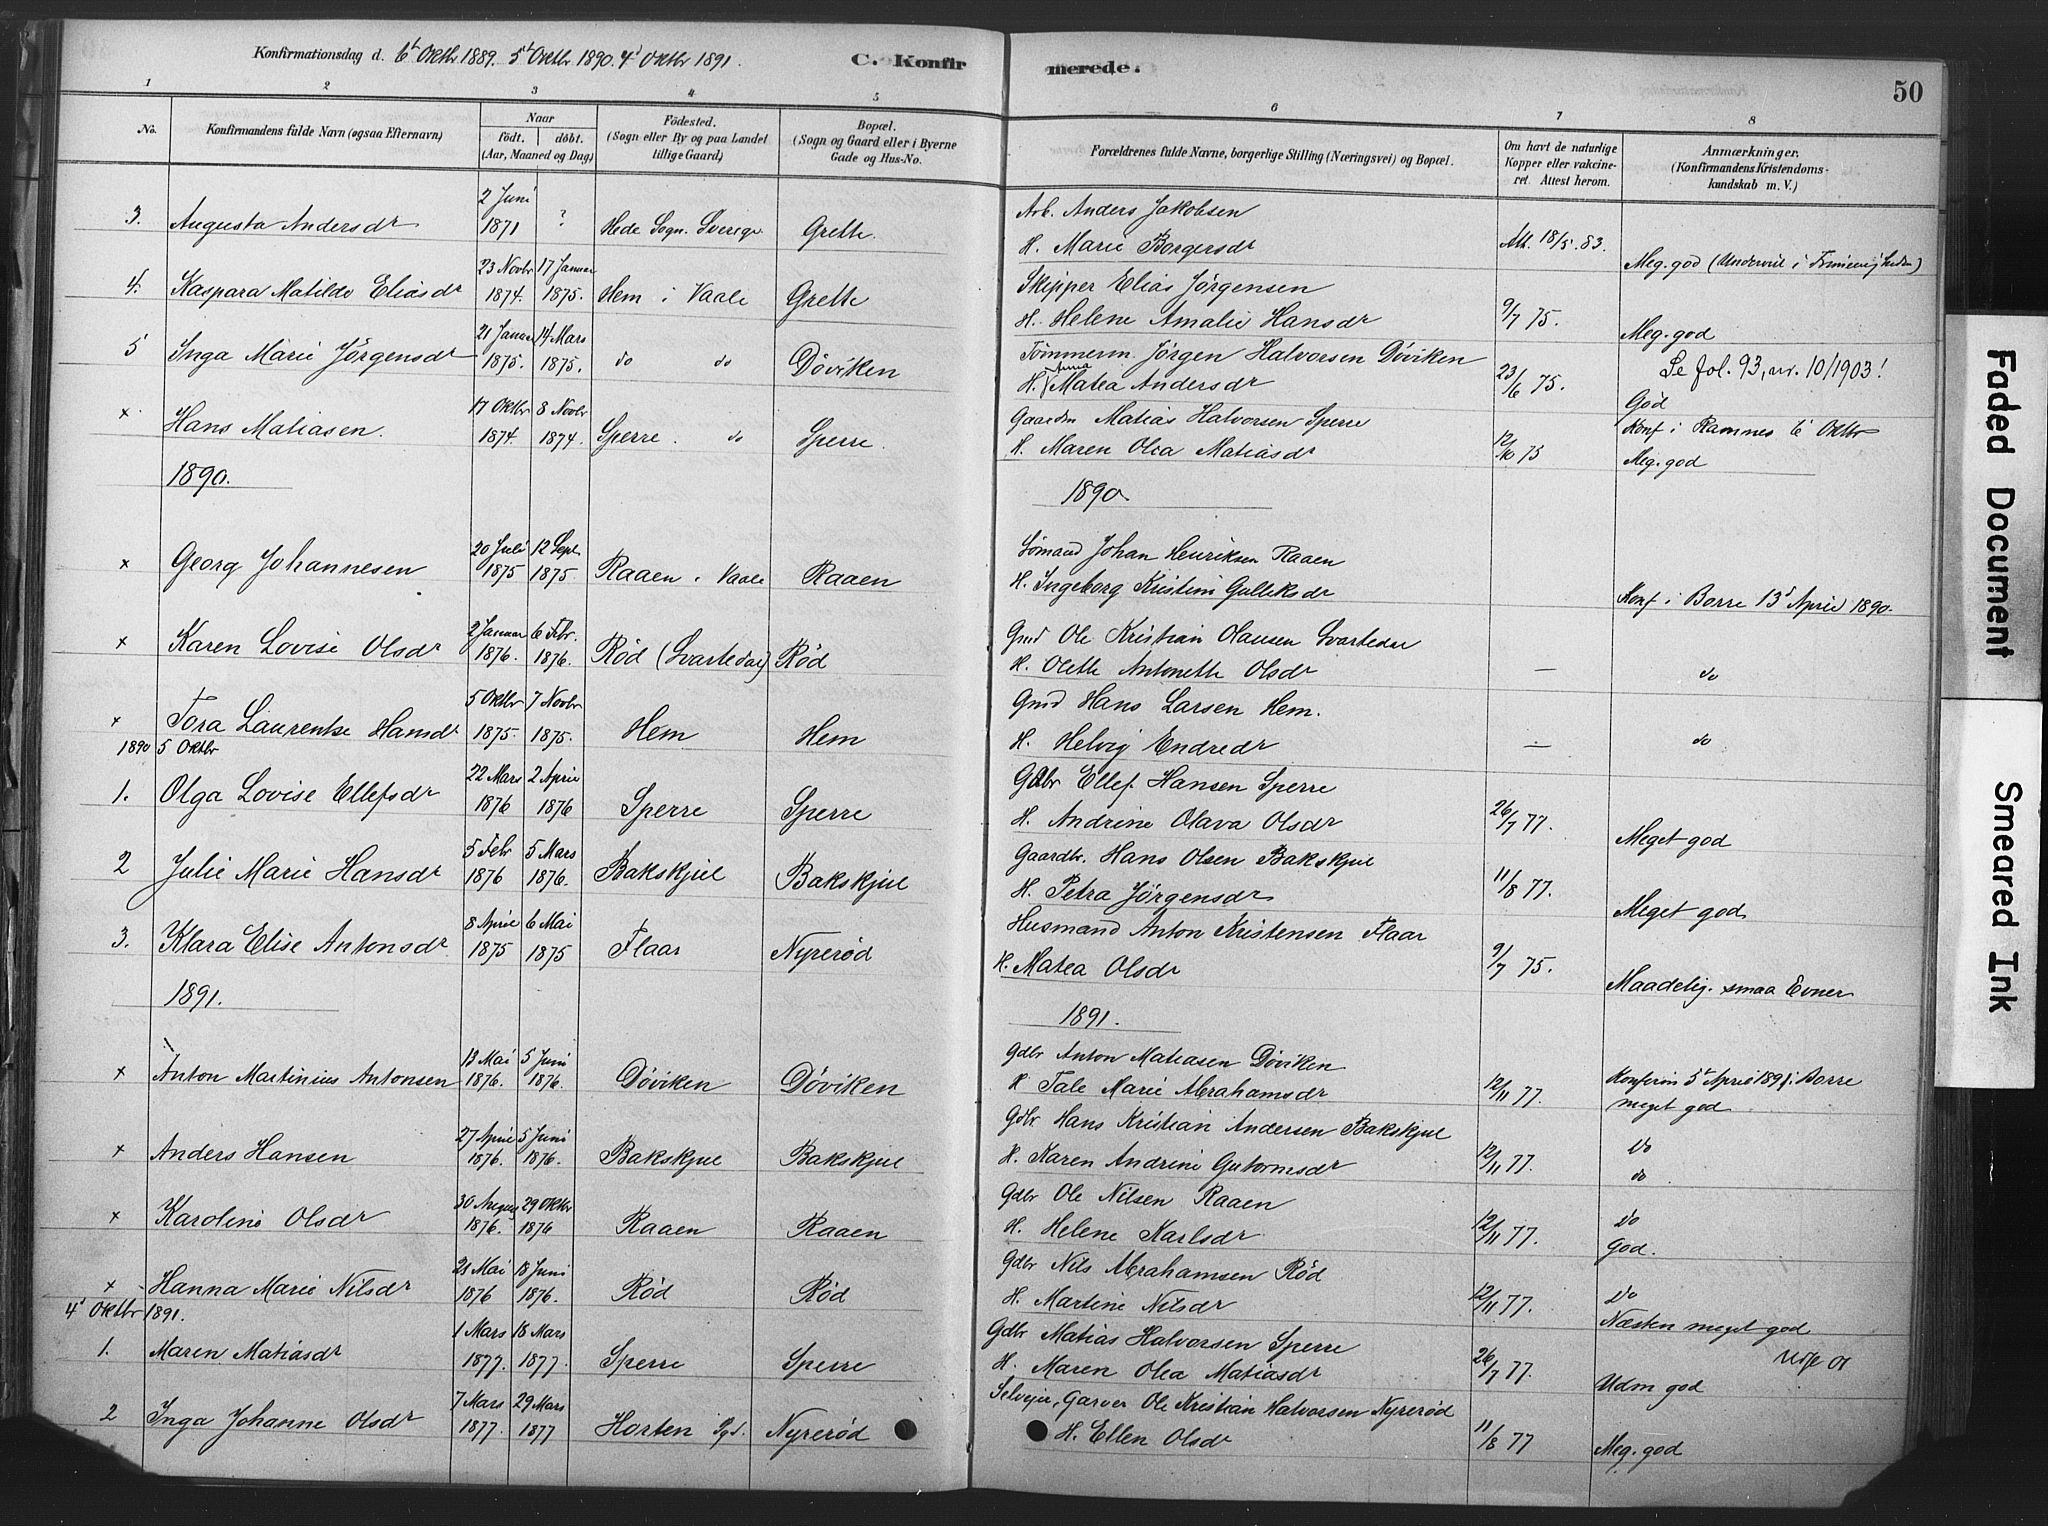 Konfirmationsdag d. 6t Oktbr 1889. 5t Oktbr 1890. 4t Oktbr 1891.
C. Konfirmerede.
50
1 2 3 4 5 6 7 8
No.
Konfirmandens fulde Navn (øgsaa Efternavn)
Naar
födt. döbt.
(Aar, Maaned og Dag)
Födested.
(Sogn eller By og paa Landet tillige Gaard.)
Bopæl.
(Sogn og Gaard eller i Byerne Gade og Hus-No.
Forældrenes fulde Navne, borgerlige Stilling (Næringsvei) og Bopæl.
Om havt de naturlige Kopper eller vakcineret. Attest herom.
Anmærkninger.
(Konfirmandens Kristendomskundskab m. V.)
3. Augusta Andersdr 2 Juni 1871 ? Hede Sogn. Sverige Grette.
Arb. Anders Jakobsen
H. Marie Borgersdr Att. 18/5 83. Meg. god
4. Kaspara Matilde Eliasdr 23 Novbr 1874. 17 Januar 1875. Hem i Vaale Grette
Skipper Elias Jørgensen
H. Helene Amalie Hansdr 9/7 75. Meg. god
5 Inga Marie Jørgensdr 21 Januar 1875. 14 Mars 1875. do do Døviken
Tømmerm. Jørgen Halvorsen Døviken
H. Anna Matea Andersdr 23/6 75. God
Se fol. 93, nr. 10/1903!
x Hans Matiasen. 17 Oktbr 1874. 8 Novbr 1874. Sperre. do Sperre.
Gaardm Matias Halvorsen Sperre
H. Maren Olea Matiasdr 12/10 75
Konf i Ramnes 6 Oktbr
Meg. god
1890.
1890.
x Georg Johannesen 20 Juli 1875 12 Sept 1875. Raaen i Vaale Raaen
Sømand Johan Henriksen Raaen
H. Ingeborg Kristine Gulleksdr Konf i Borre 13t April 1890.
x Karen Lovise Olsdr 2 Januar 1876. 6 Febr. 1876. Rød (Svartedal) Rød
Gmd Ole Kristian Olausen Svartedal
H. Olette Antonette Olsdr — do
x Tora Laurentse Hansdr 5 Oktbr 1875. 7 Novbr 1875. Hem Hem
Gmd Hans Larsen Hem.
H. Helvig Endredr — do
1890 5 Oktbr
1. Olga Lovise Ellefsdr 22 Mars 1876 2 April 1876 Sperre Sperre
Gdbr Ellef Hansen Sperre
H. Andrine Olava Olsdr 26/7 77. Meget god
2 Julie Marie Hansdr 5 Febr 1876 5 Mars 1876. Bakskjul Bakskjul
Gaardbr. Hans Olsen Bakskjul
H. Petra Jørgensdr 11/8 77. Meget god
3. Klara Elise Antonsdr 8 April 1875 6 Mai 1875 Flaar Nyrerød
Husmand Anton Kristensen Flaar
H. Matea Olsdr 9/7 75. Maadelig. smaa Evner
1891.
1891.
x Anton Martinius Antonsen 13 Mai 1876. 5 Juni 1876. Døviken Døviken
Gdbr Anton Matiasen Døviken
H Tale Marie Abrahamsdr 12/11 77.
Konfirm 5t April 1891 i Borre
meget god
x Anders Hansen 27 April 1876. 5 Juni 1876. Bakskjul Bakskjul
Gdbr Hans Kristian Andersen Bakskjul
H. Karen Andrine Gutormsdr 12/11 77.
do
do
x Karoline Olsdr 30 August 1876. 29 Oktbr 1876 Raaen Raaen
Gdbr Ole Nilsen Raaen
H. Helene Karlsdr 12/11 77.
do
God.
x Hanna Marie Nilsdr 21 Mai 1876 18 Juni 1876. Rød Rød
Gdbr Nils Abrahamsen Rød
H. Martine Nilsdr 12/11 77.
do
Næsten meget god
4t Oktbr 1891.
1. Maren Matiasdr 1 Mars 1877. 18 Mars 1877. Sperre Sperre
Gdbr Matias Halvorsen Sperre
H. Maren Olea Matiasdr 26/7 77. Udm god
2 Inga Johanne Olsdr 7 Mars 1877. 29 Mars 1877 Horten Pgd. Nyrerød
Selveier, Garver Ole Kristian Halvorsen Nyrerød
H. Ellen Olsdr 11/8 77 Meg. god
Faded Document
Smeared Ink